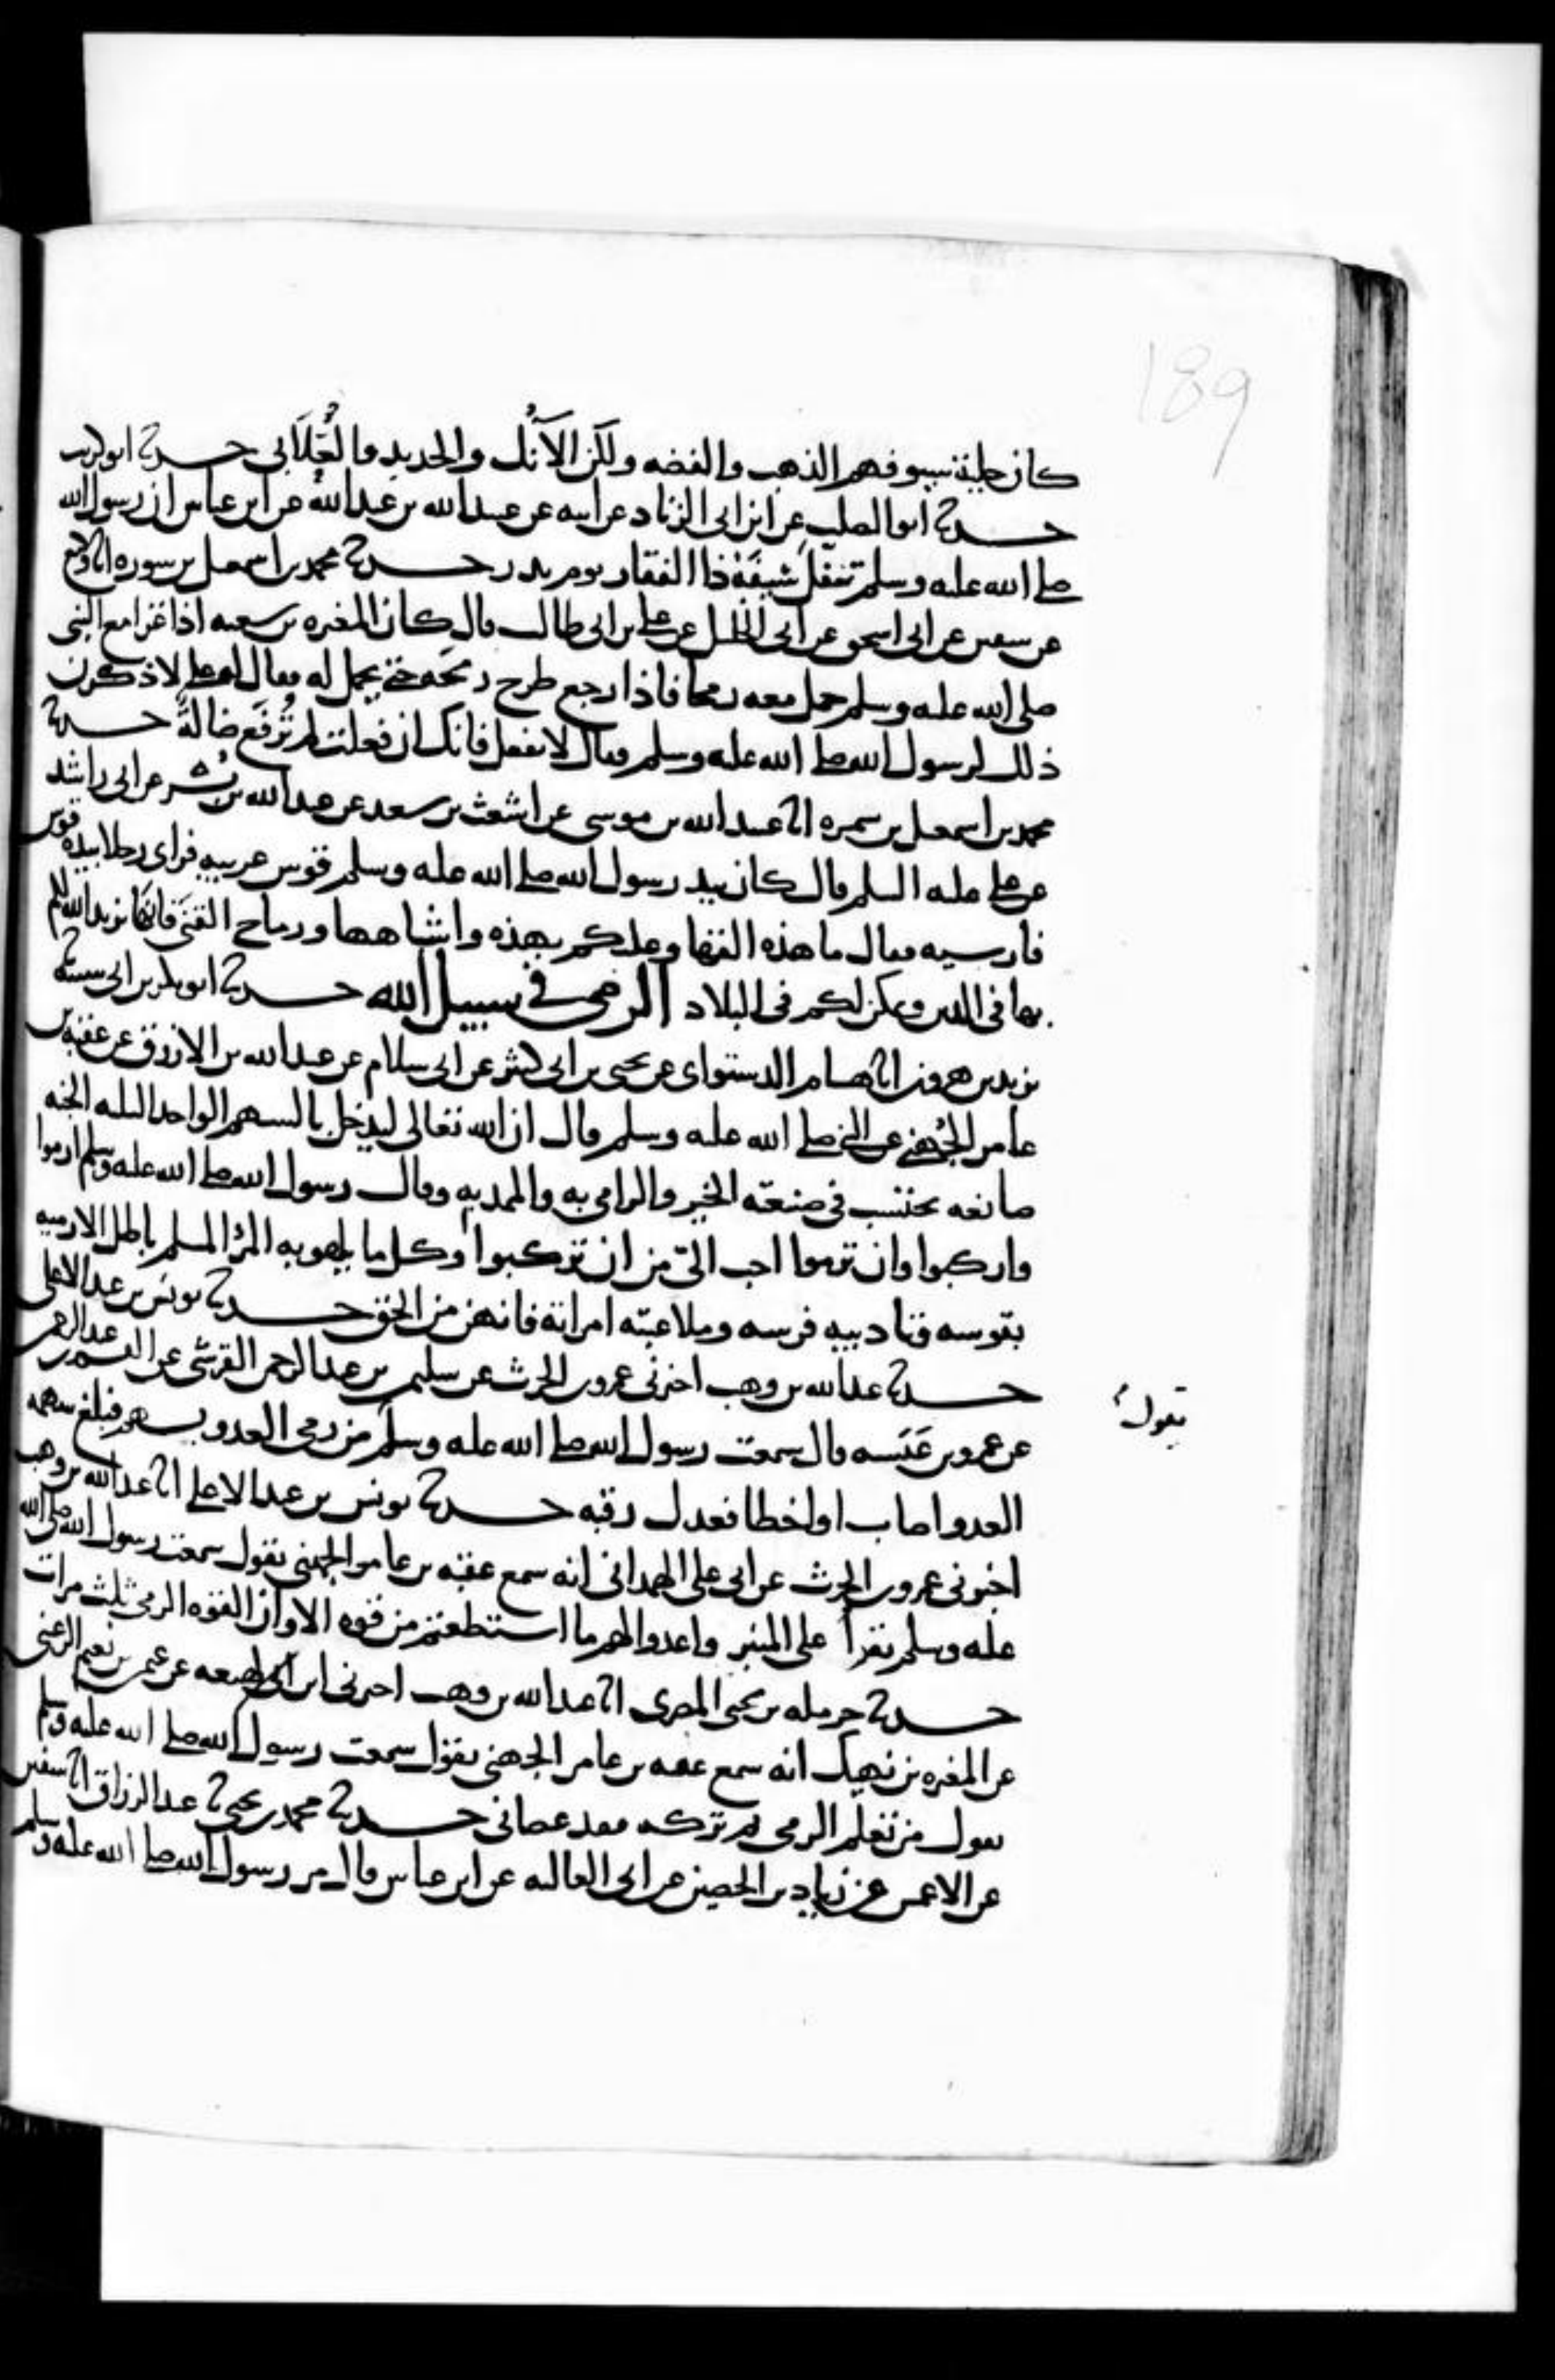 189
كان حلية سيوفهم الذهب والفضه ولكن الآنُك والحديد والعَلَابي حدثنا ابو كريب
حدثنا ابو الصلت عن ابن ابي الزناد عن ابيه عن عبيد الله بن عبد الله عن ابن عباس ان رسول الله
صلى الله عليه وسلم تنفل سيفَهُ ذا الفقار يوم بدر حدثنا محمد بن اسمعيل بن سمره انا وكيع
عن سفين عن ابي اسحق عن ابي الخليل عن علي بن ابي طالب قال كان المغيره بن شعبه اذا غزا مع النبي
صلى الله عليه وسلم حمل معه رمحا فاذا رجع طرح رمحَه حتى يحمل له فقال له علي لاذكرن
ذلك لرسول الله صلى الله عليه وسلم فقال لا تفعل فانك ان فعلت لم تُرفَع ضالةً حدثنا
محمد بن اسمعيل بن سمره انا عبيد الله بن موسى عن اشعث بن سعيد عن عبد الله بن بُسر عن ابي راشد
عن علي عليه السلم قال كان بيد رسول الله صلى الله عليه وسلم قوس عربيه فراى رجلا بيده قوس
فارسيه فقال ما هذه القها وعليكم بهذه واشباهها ورماح القنَى فانهَا يزيد الله لكم
بها في الدين ويمكن لكم في البلاد الرمي في سبيل الله حدثنا ابو بكر بن ابي شيبه نا
يزيد بن هرون انا هشام الدستواى عن يحيى بن ابي كثير عن ابي سلام عن عبد الله بن الازرق عن عقبه بن
عامر الجُهني عن النبي صلى الله عليه وسلم قال ان الله تعالى ليدخل بالسهم الواحد الثلثه الجنه
صانعه يحتسب في صنعته الخير والرامي به والممد به وقال رسول الله صلى الله عليه وسلم ارموا
واركبوا وان ترموا احب اليّ من ان تركبوا وكل ما يلهو به المرؤ المسلم باطل الا رميه
بقوسه وتاديبه فرسه وملاعبته امراته فانهن من الحق حدثنا يونس بن عبد الاعلى
حدثنا عبد الله بن وهب اخبرني عمرو بن الحرث عن سليمن بن عبد الرحمن القرشي عن القسم بن عبد الرحمن
عن عمرو بن عَبَسه قال سمعت رسول الله صلى الله عليه وسلم من رمى العدو بسهم فبلغ سهمه
يقول
العدو اصاب او اخطا فعدل رقبه حدثنا يونس بن عبد الاعلى انا عبد الله بن وهب
اخبرني عمرو بن الحرث عن ابي علي الهمداني انه سمع عقبه بن عامر الجهني يقول سمعت رسول الله صلى الله
عليه وسلم يقرأ على المنبر واعدوا لهم ما استطعتم من قوه الا وان القوه الرمي ثلث مرات
حدثنا حرمله بن يحيى المصري انا عبد الله بن وهب اخبرني ابن لهيعه عن عثمن بن نعيم الرعيني
عن المغيره بن نهيك انه سمع عقبه بن عامر الجهني يقول سمعت رسول الله صلى الله عليه وسلم
يقول من تعلم الرمي ثم تركه فقد عصاني حدثنا محمد بن يحيى نا عبد الرزاق انا سفين
عن الاعمش عن زياد بن الحصين عن ابي العاليه عن ابن عباس قال مر رسول الله صلى الله عليه وسلم